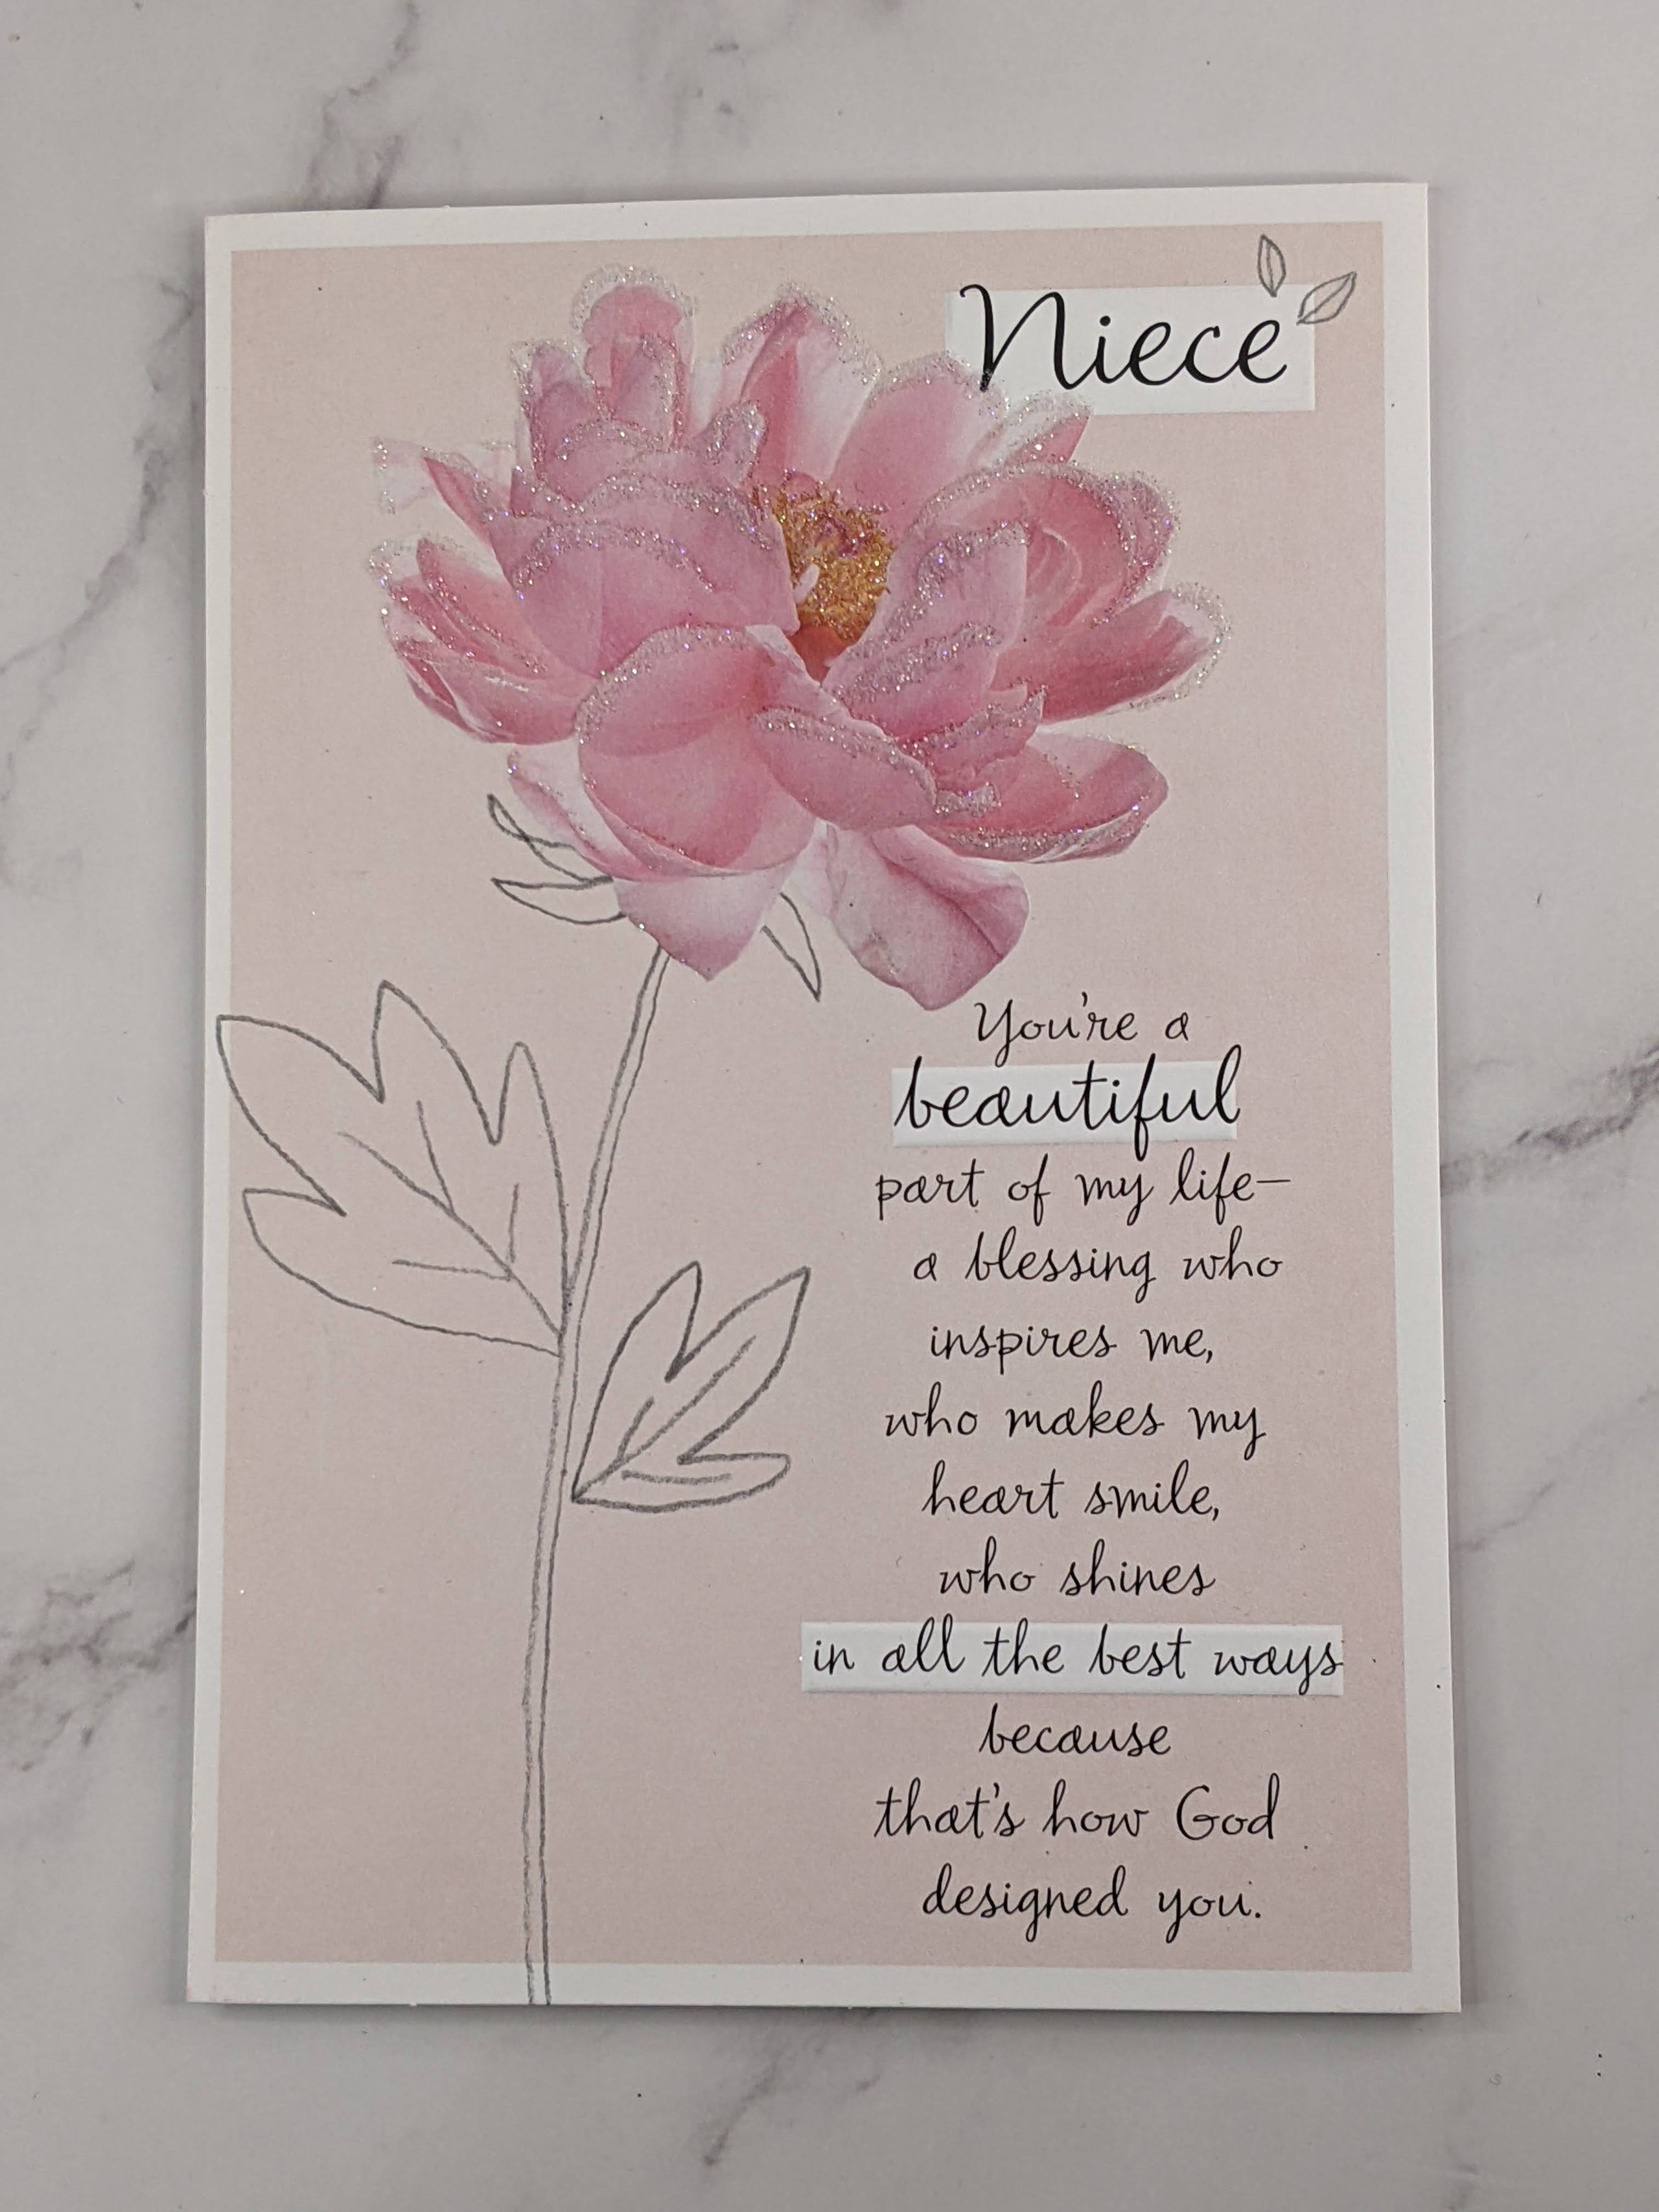 Niece
You're a
beautiful
part of my life—
a blessing who
inspires me,
who makes my
heart smile,
who shines
in all the best ways
because
that's how God
designed you.